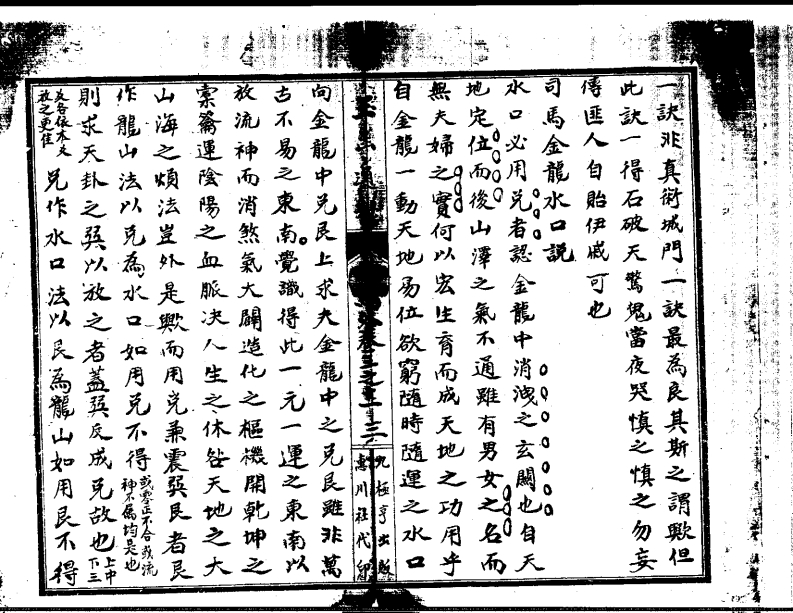 一訣非真術城門一訣最為良其斯之謂歟但
此訣一得石破天驚鬼當夜哭慎之慎之勿妄
傳匪人自貽伊戚可也
司馬金龍水口説
水口必用兌者認金龍中消洩之玄關也自天
地定位而後山澤之氣不通雖有男女之名而
無夫婦之實何以宏生育而成天地之功用乎
自金龍一動天地易位欲窮隨時隨運之水口
卷三之
三
九極亨出版
惠川社代印
向金龍中兌艮上求夫金龍中之兌艮雖非萬
古不易之東南覺識得此一元一運之東南以
放流神而消煞氣大闢造化之樞機開乾坤之
橐籥運陰陽之血脈决人生之休咎天地之大
山海之煩法豈外是歟而用兌兼震巽艮者艮
作龍山法以兌為水口如用兌不得或零正不合或流神不屬均是也
則求天卦之巽以放之者蓋巽反成兌故也上中下三
爻各依本爻放之更佳 兌作水口法以艮為龍山如用艮不得